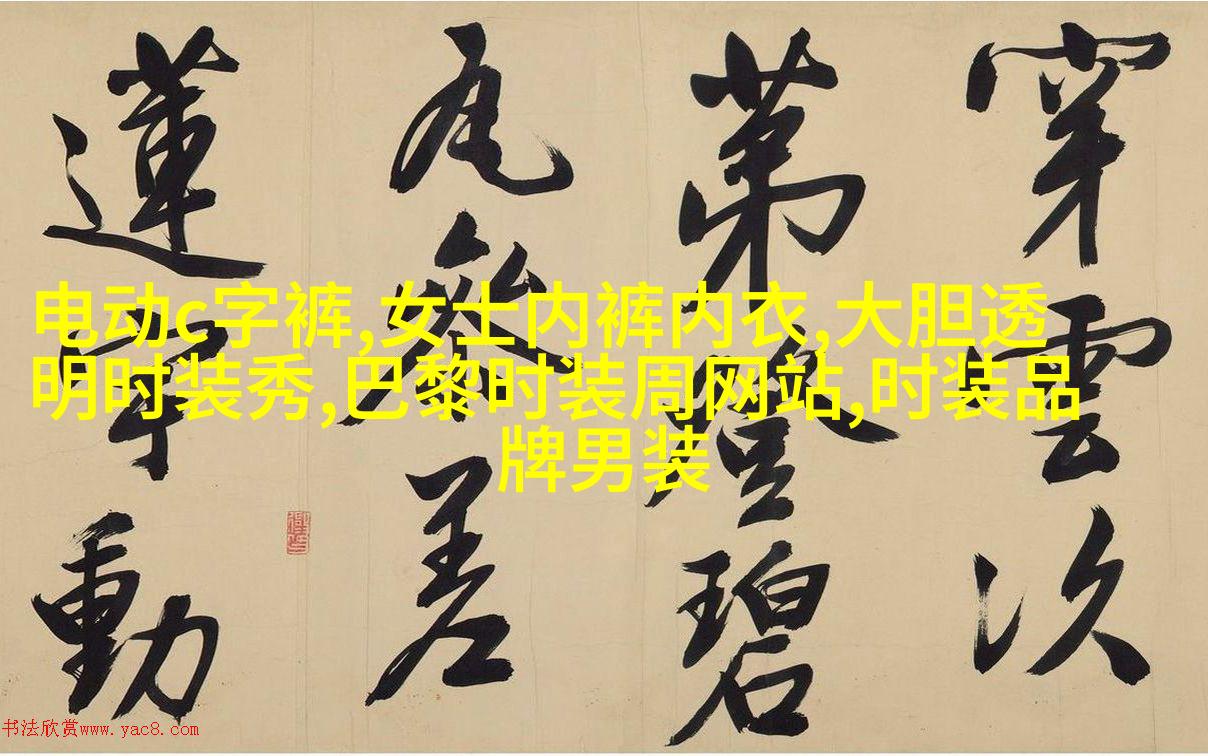 穿雲次
第登碧
瓦參差
蓮宇動
电动c字裤,女士内裤内衣,大胆透
明时装秀,巴黎时装周网站,时装品
牌男装
书法欣赏www.yac8.com